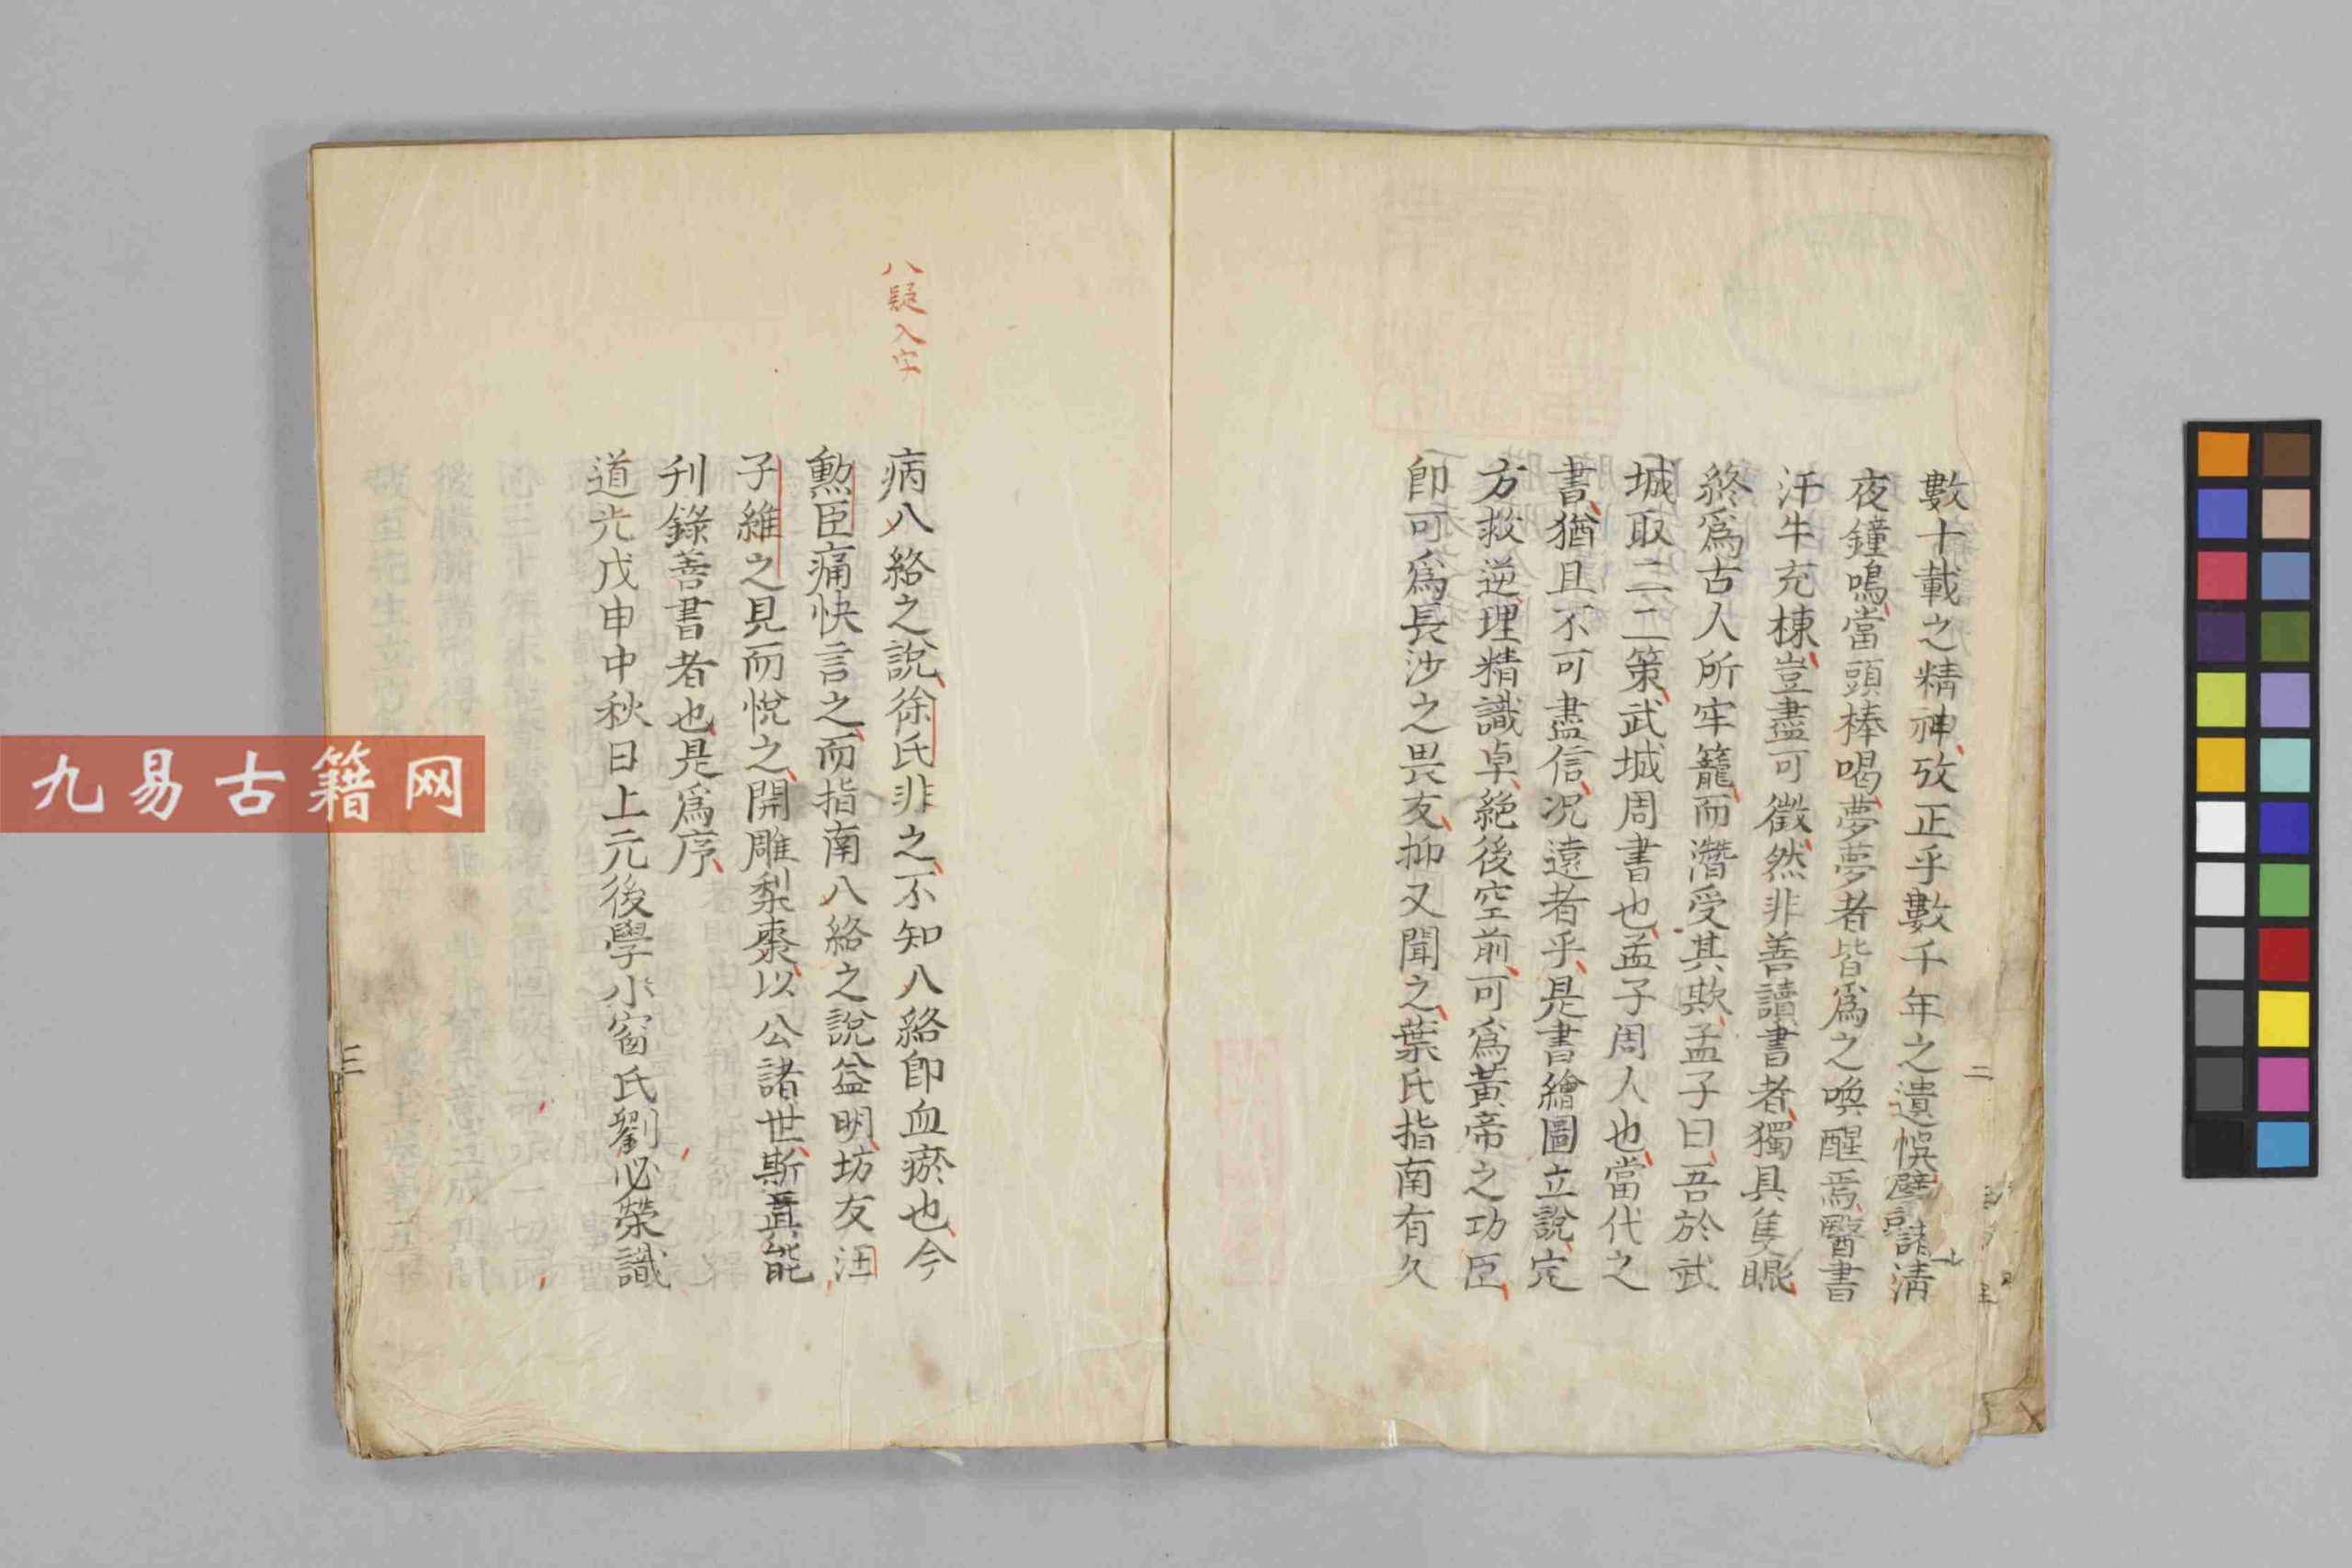 數十載之精神攷正乎數千年之遺悞譬諸淸
夜鐘鳴當頭棒喝夢夢者皆爲之喚醒焉醫書
汗牛充棟豈盡可徵然非善讀書者獨具隻眼
終爲古人所牢籠而潛受其欺孟子曰吾於武
城取二三策武城周書也孟子周人也當代之
書猶且不可盡信况遠者乎是書繪圖立說定
方救逆理精識卓絕後空前可爲黃帝之功臣
卽可爲長沙之畏友抑又聞之葉氏指南有久
二
八疑入字
病八絡之說徐氏非之不知八絡卽血瘀也今
勲臣痛快言之而指南八絡之說益明坊友汪
子維之見而悅之開雕梨棗以公諸世斯眞能
刊錄善書者也是爲序
道光戊申中秋日上元後學小窗氏劉必榮識
三
九易古籍网